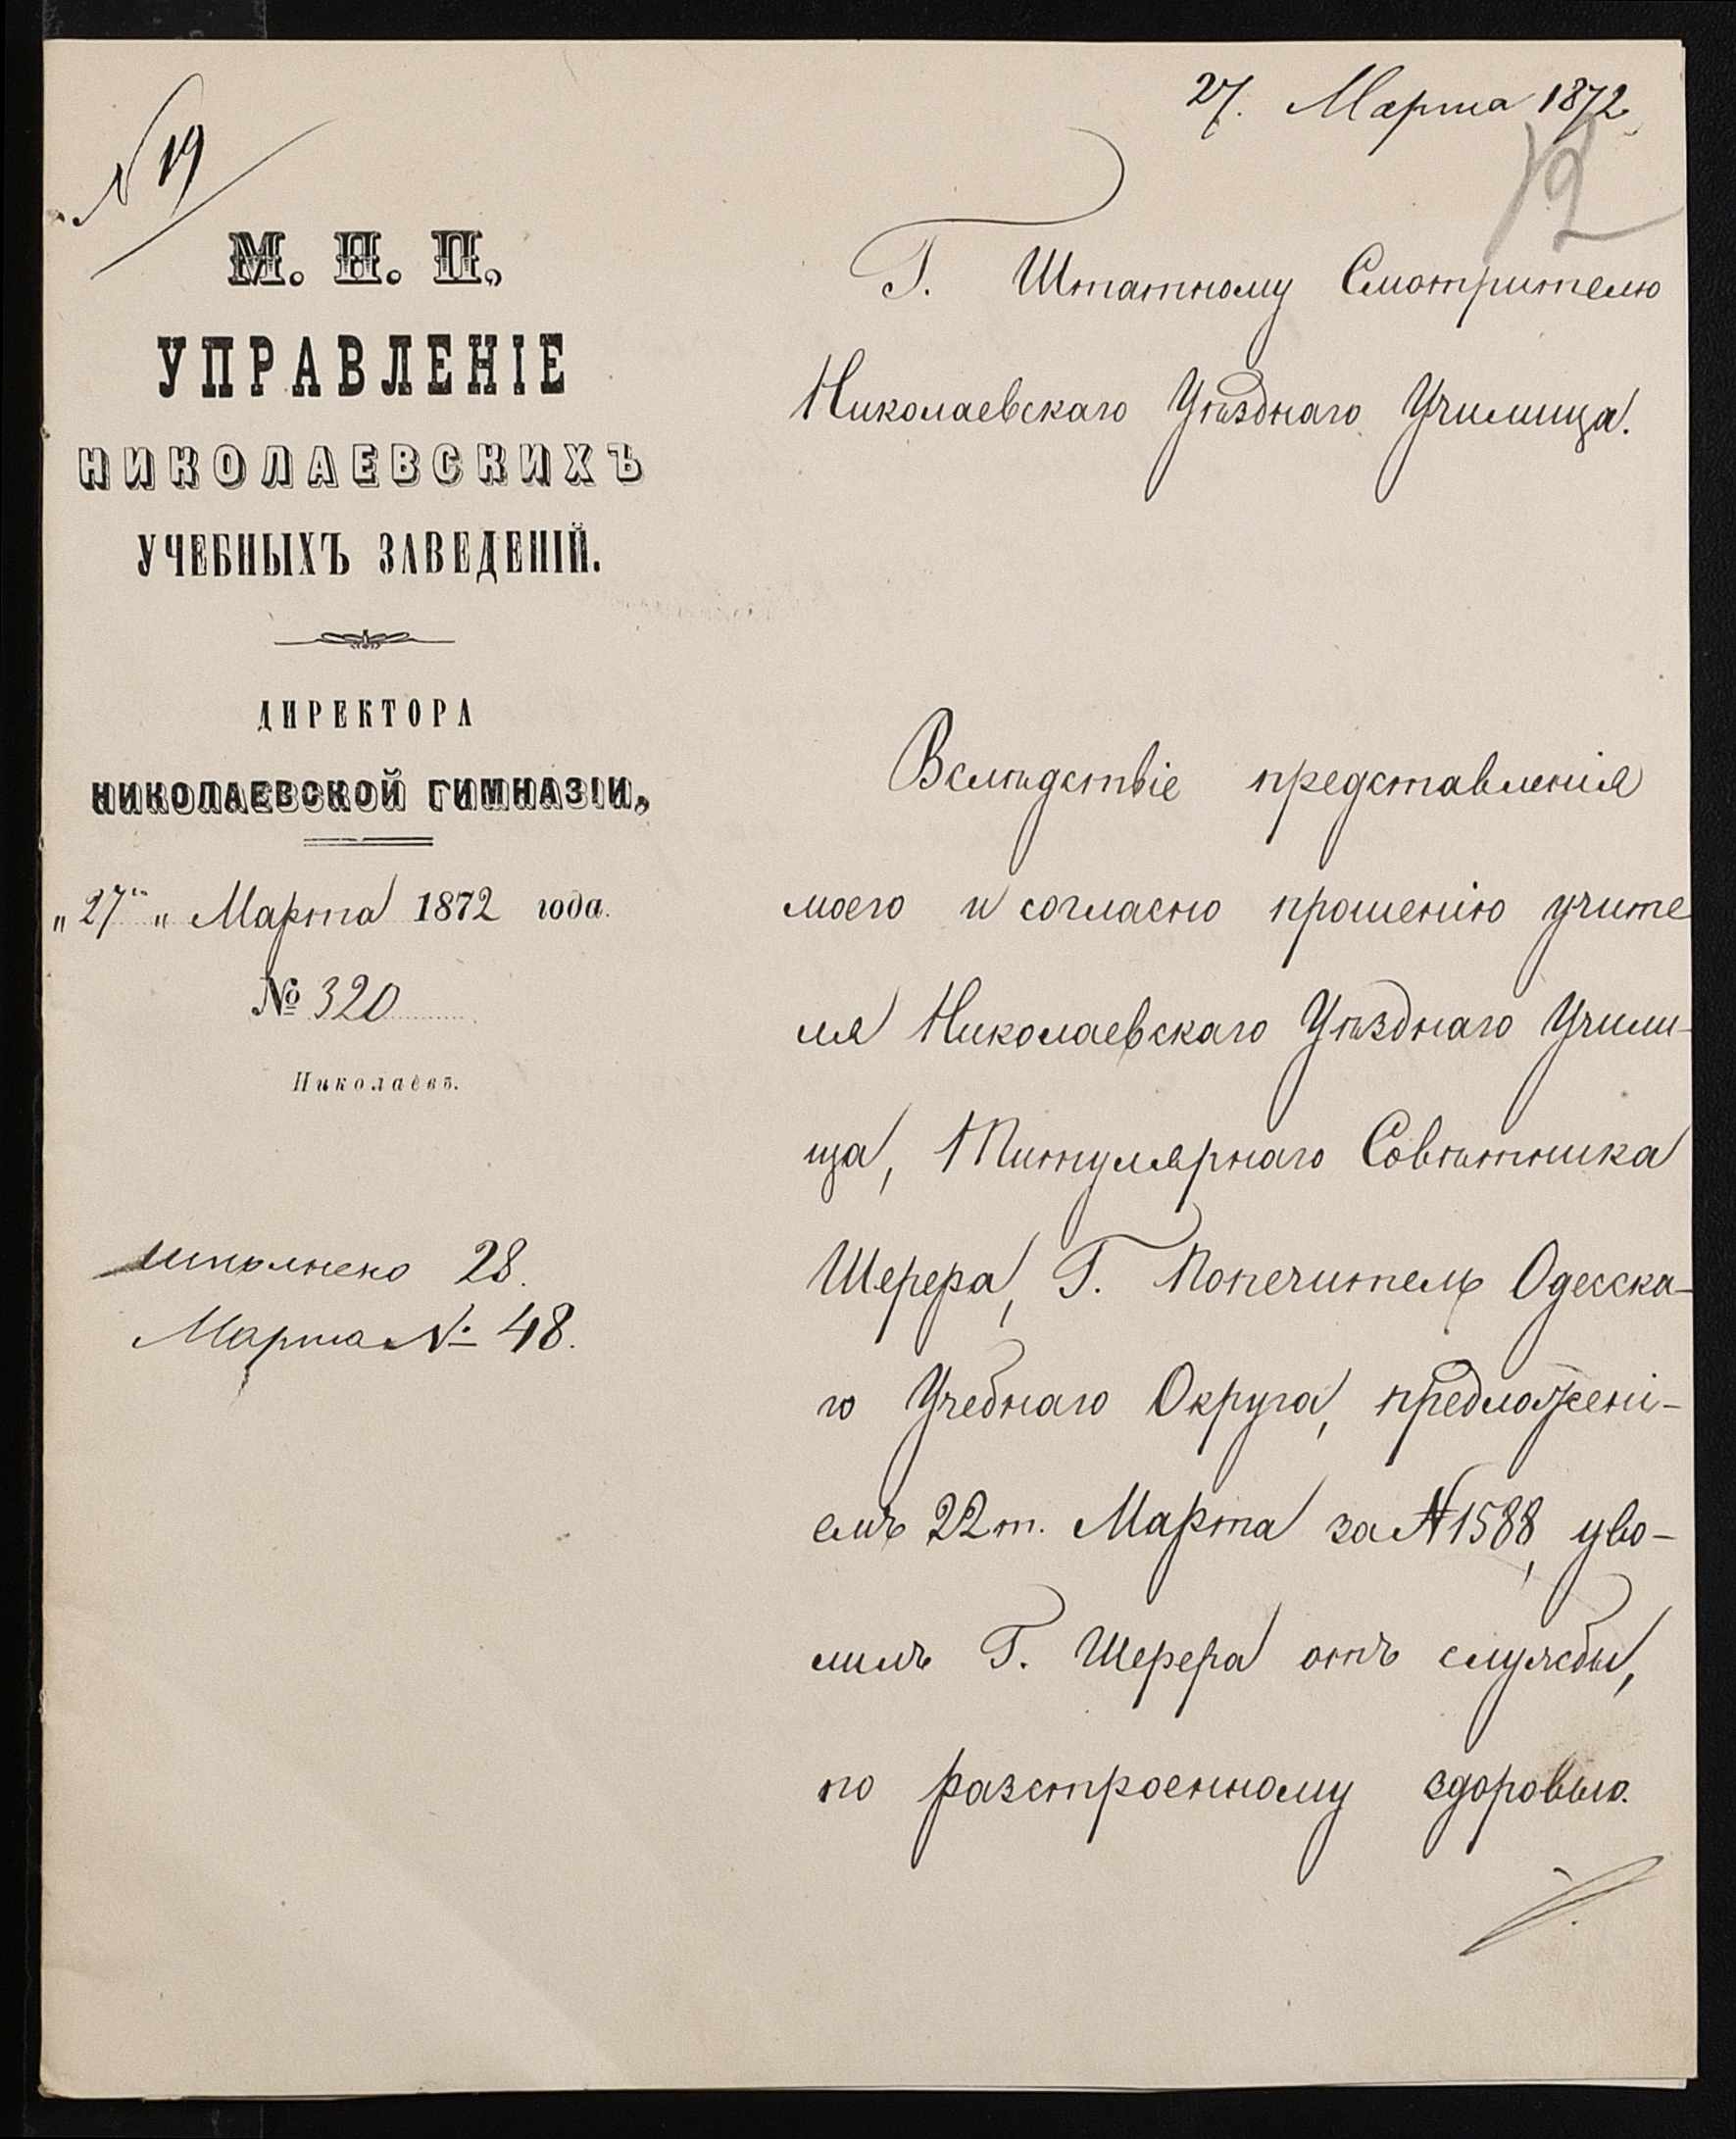 27. Марта 1872
12
N 19
М. Н. П.
УПРАВЛЕНІЕ
НИКОЛАЕВСКИХЪ
УЧЕБНЫХЪ ЗАВЕДЕНІЙ.
ДИРЕКТОРА
НИКОЛАЕВСКОЙ ГИМНАЗІИ,
"27го" Марта 1872 года.
№ 320
Николаевъ.
исполнено 28.
Марта № 48.
Г. Штатному Смотрителю
Николаевскаго Уѣзднаго Училища.
Вслѣдствіе представленія
моего и согласно прошенію учите
ля Николаевскаго Уѣзднаго Учили-
ща, Титулярнаго Совѣтника
Шерера, Г. Попечитель Одесска-
го Учебнаго Округа, предложені-
емъ 22 т. Марта за N 1588, уво-
лилъ Г. Шерера отъ службы,
по разстроенному здоровью.